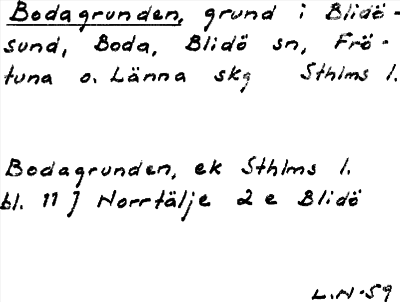 Bodagrunden, grund i Blidö-
sund, Boda, Blidö sn, Frö-
tuna o. Länna skg Sthlms l.
Bodagrunden, ek Sthlms l.
bl. 11 J Norrtälje 2 e Blidö
L.N-59